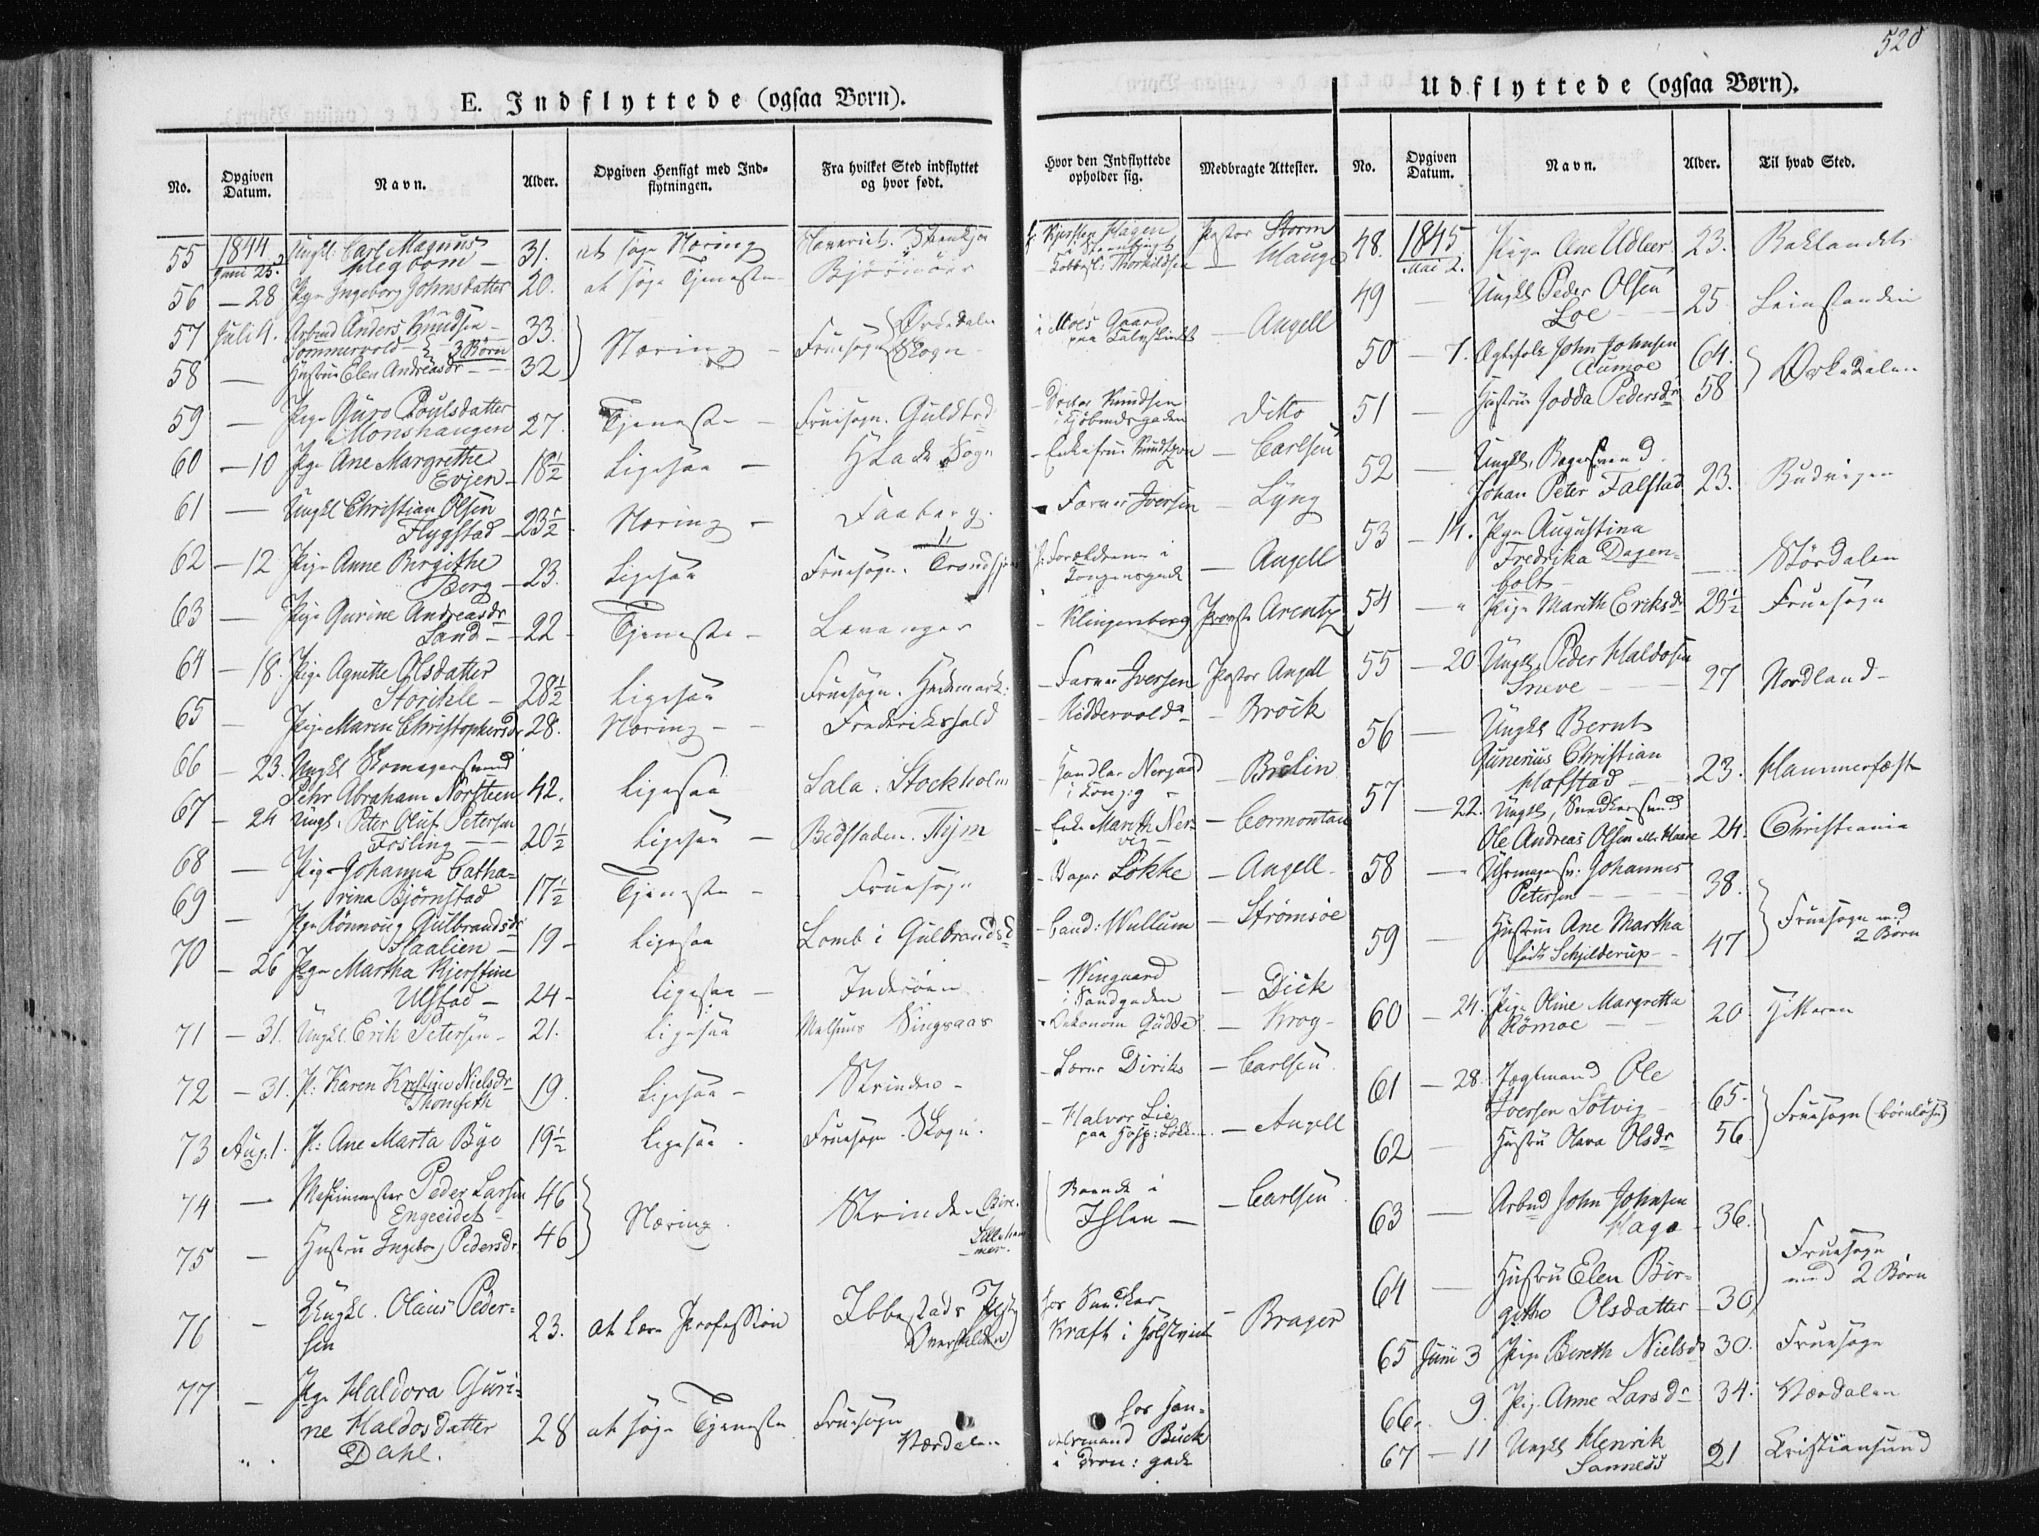 520
E. Indflyttede (ogsaa Børn).
No. Opgiven Datum. Navn. Alder. Opgiven Hensigt med Indflytningen. Fra hvilket Sted indflyttet og hvor født. Hvor den Indflyttede opholder sig. Medbragte Attester.
55 1844 Juni 25. Ungkl. Carl Magnus 31. at søge Næring
56 — 28 Pige Ingeborg Johnsdatter 20. at søge Tjeneste Bjørnöer — Hauge
57 Juli 4. Arbmd Anders Knudsen 33.
Sommervold — 3 Børn Næring — Fruesogn Ørkedalen Skogn i Moes Gaard — Angell
58 — Hustru Elen Andreasdr — 32
59 — Pige Guro Poulsdatter
Monshaugen 27. Tjeneste — Fruesogn. — Doctor Knudsen i Kjøbmdsgaden Ditto
60 — 10 Pige Ane Margrethe
Evjen 18½ Ligesaa — Hlade Sogn — Enkefru Knudtzon — Carlsen
61 — Ungkl Christian Olsen
Flygstad 23½ Næring — Faaberg. — Farver Iversen — Lyng
62 — 12 Pige Anne Birgithe
Berg 23. Ligesaa Fruesogn. Trondhjem h. Forældrene i Kongensgade — Angell
63 — Pige Gurine Andreasdr
Sand 22 Tjeneste — Levanger — Klingenberg Provst Arentz
64 — 18. Pige Agnette Olsdatter
Storihle 28½ Ligesaa Fruesogn. Hedemark: — Farver Iversen Pastor Angell
65 — Pige Maren Christophersdr 28. Næring — Frederikshald — Riddervolds — Brock
66 — 23. Ungkl Skomagersvend
Pehr Abraham Norsteen 42. Ligesaa Sala: Stockholm — Handler Nergaard i Kong:g — Brelin
67 — 24 Ungk. Peter Oluf Petersen
Frsling — 20½ Ligesaa — Bedstaden. — Enke Mareth Nervig — Cormontan
68 — Pige Johanna Catharina
Bjørnstad 17½ Tjeneste — Fruesogn — Bager Løkke — Angell.
69 — Pige Rönnoug Gulbrandsdr
Staalien 19 — Ligesaa Lomb i Gulbrandsd — Cand: Wullum — Strømsøe
70 — 26 Pige Martha Kjerstine
Ulstad — 24 — Ligesaa — Inderöen — Wingaard i Sandgaden — Dick
71 — 31. Ungkl. Erik Petersen 21. Ligesaa Melhuus Singsaas — Oekonom Gudde — Krog —
72 — 31. P: Karen Kristine Nielsdr
Thomseth 19. Ligesaa — Strinden — — Lærer Diriks — Carlsen.
73 Aug. 1. P: Ane Marta Bye 19½ Ligesaa. Fruesogn. Skogn. — Halvor Lie paa Hosp: Løkken — Angell
74 — Maskinmester Peder Larsen 46
Engeeidet Næring. Strinden Lillehammer. Boende i Ihlen — — Carlsen.
75 — Hustru Ingebor Pedersdr 46
76 — Ungkl. Olaus Pedersen 23. at lære Profession Ibbestads hos Snedker Kraft i — Brager
77 — Pige Haldora Gurine
Haldosdatter
Dahl. 28 at søge Tjeneste Fruesogn
Værdalen hos Handelsmand Buck i Dron: gade
Udflyttede (ogsaa Børn).
No. Opgiven Datum. Navn. Alder. Til hvad Sted.
48. 1845 Mai 2. Pige Ane Udler 23. Baklandet
49 — Ungkl Peder Olsen
Loe 25 Leinstanden
50 — 7. Ægtefolk John Johnsen
Aumoe 64.
51 — Hustru Jodda Pedersdr 58 Ørkedalen
52 — Ungkl. Bagersvend
Johan Peter Falstad 23. Budvigen
53 — 14. Pige Augustina
Fredrika Dagenbolt — Stördalen
54 — " Pige Marith Eriksdr 23½ Fruesogn
55 — 20 Ungkl Peder Haldosen
Sneve — 27 Nordland —
56 — Ungkl Bernt
Gunerius Christian
Hofstad — 23. Hammerfest
57 — 22. Ungkl, Snedkersvend
Ole Andreas Olsen 24. Christiania
58 — " Uhrmagersv: Johannes
Petersen — 38.
59 — Hustru Ane Martha
født Schjelderup — 47 Fruesogn med 2 Børn
60 — 24. Pige Oline Margretta
Römoe — 20. Hitteren
61 — 28. Jægtmand Ole
Iversen Sötvig 65.
62 — Hustru Olava Olsdr 56. Fruesogn (børnløse)
63 — Arbmd John Johnsen
Haga 36.
64 — Hustru Elen Birgitha
Olsdatter 30 Fruesogn med 2 Børn
65 Juni 3 Pige Bereth Nielsdr 30. Fruesogn
66. 9. Pig. Anne Larsdr 34. Værdalen
67 — 11 Ungkl Henrik
Sanness 21 Kristiansund